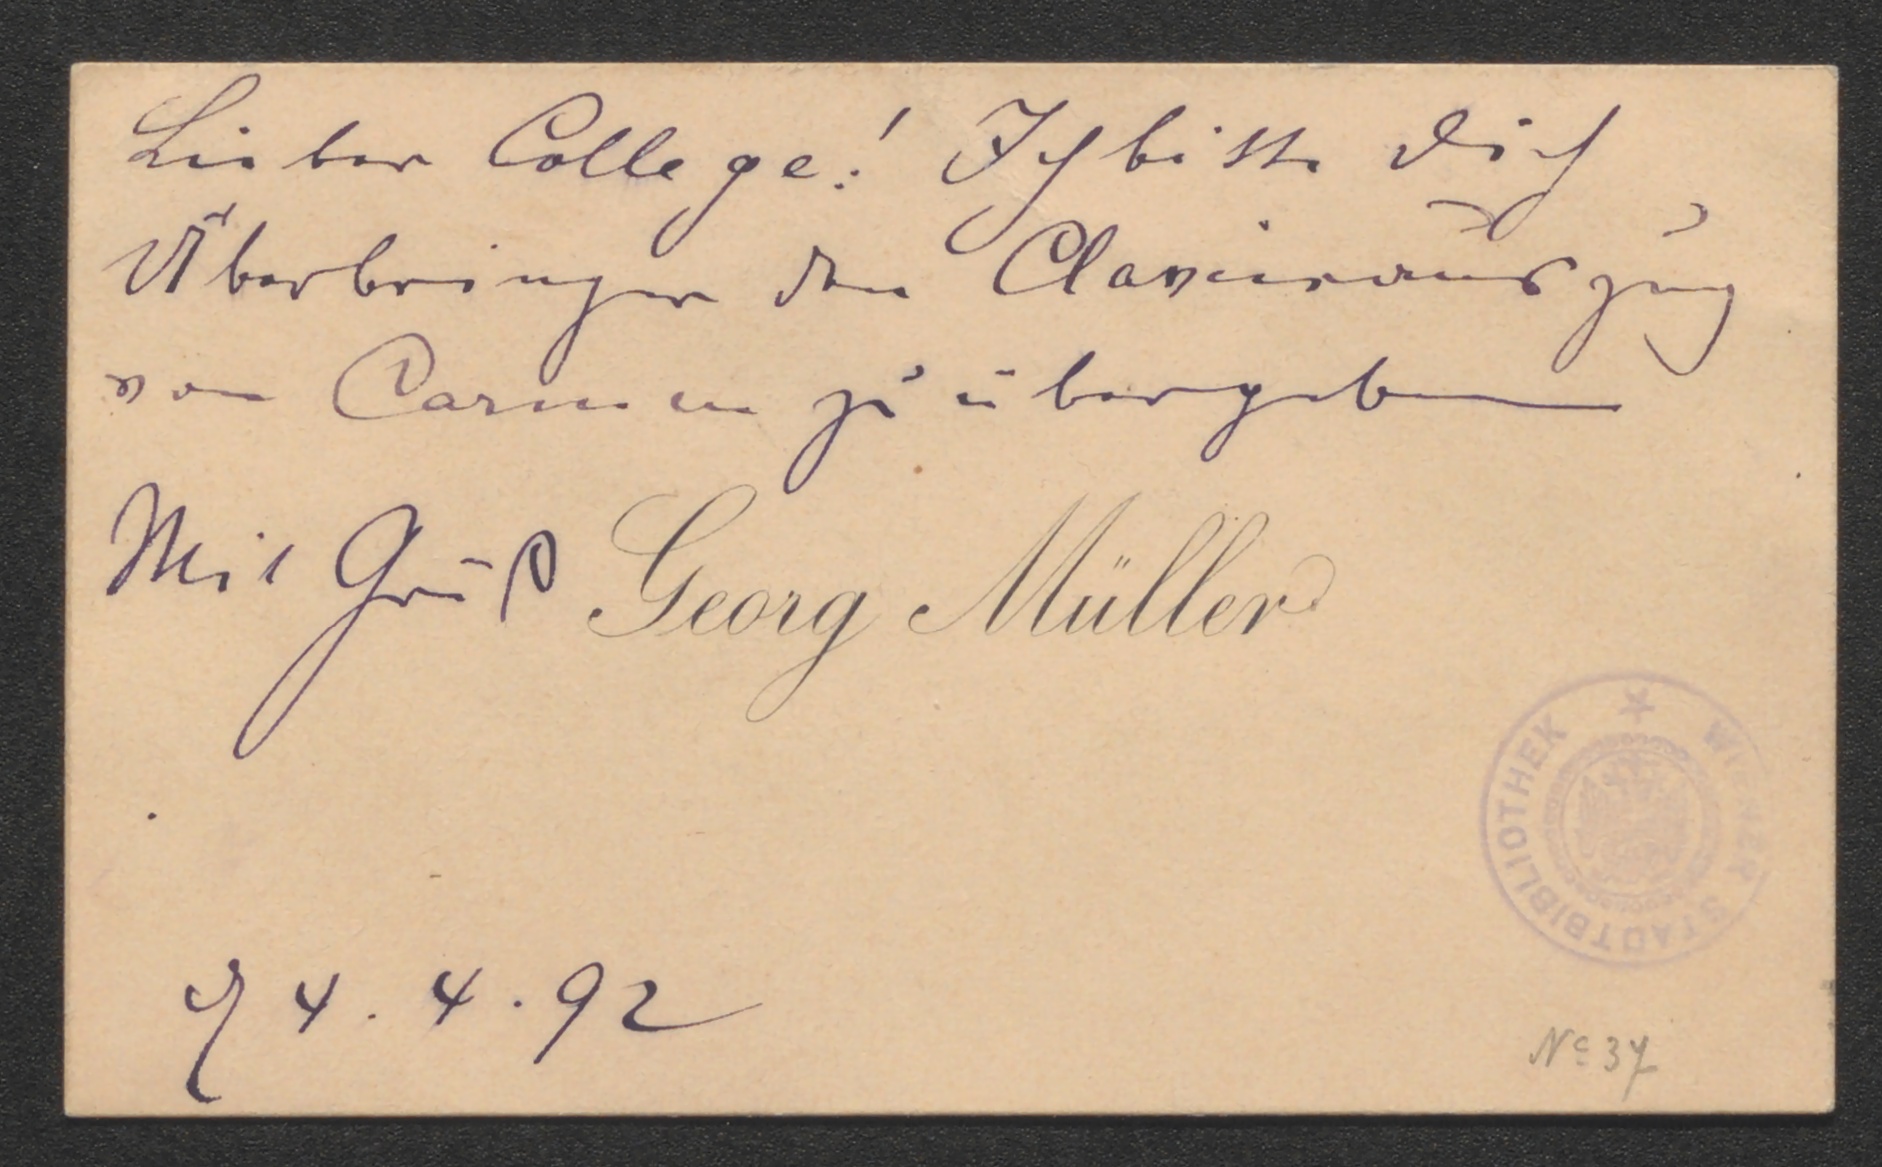 Lieber College! Ich bitte Dich
Überbringer den Clavierauszug
von Carmen zu übergeben
Mit Gruß Georg Müller
4. 4. 92
WIENER STADTBIBLIOTHEK
No 37